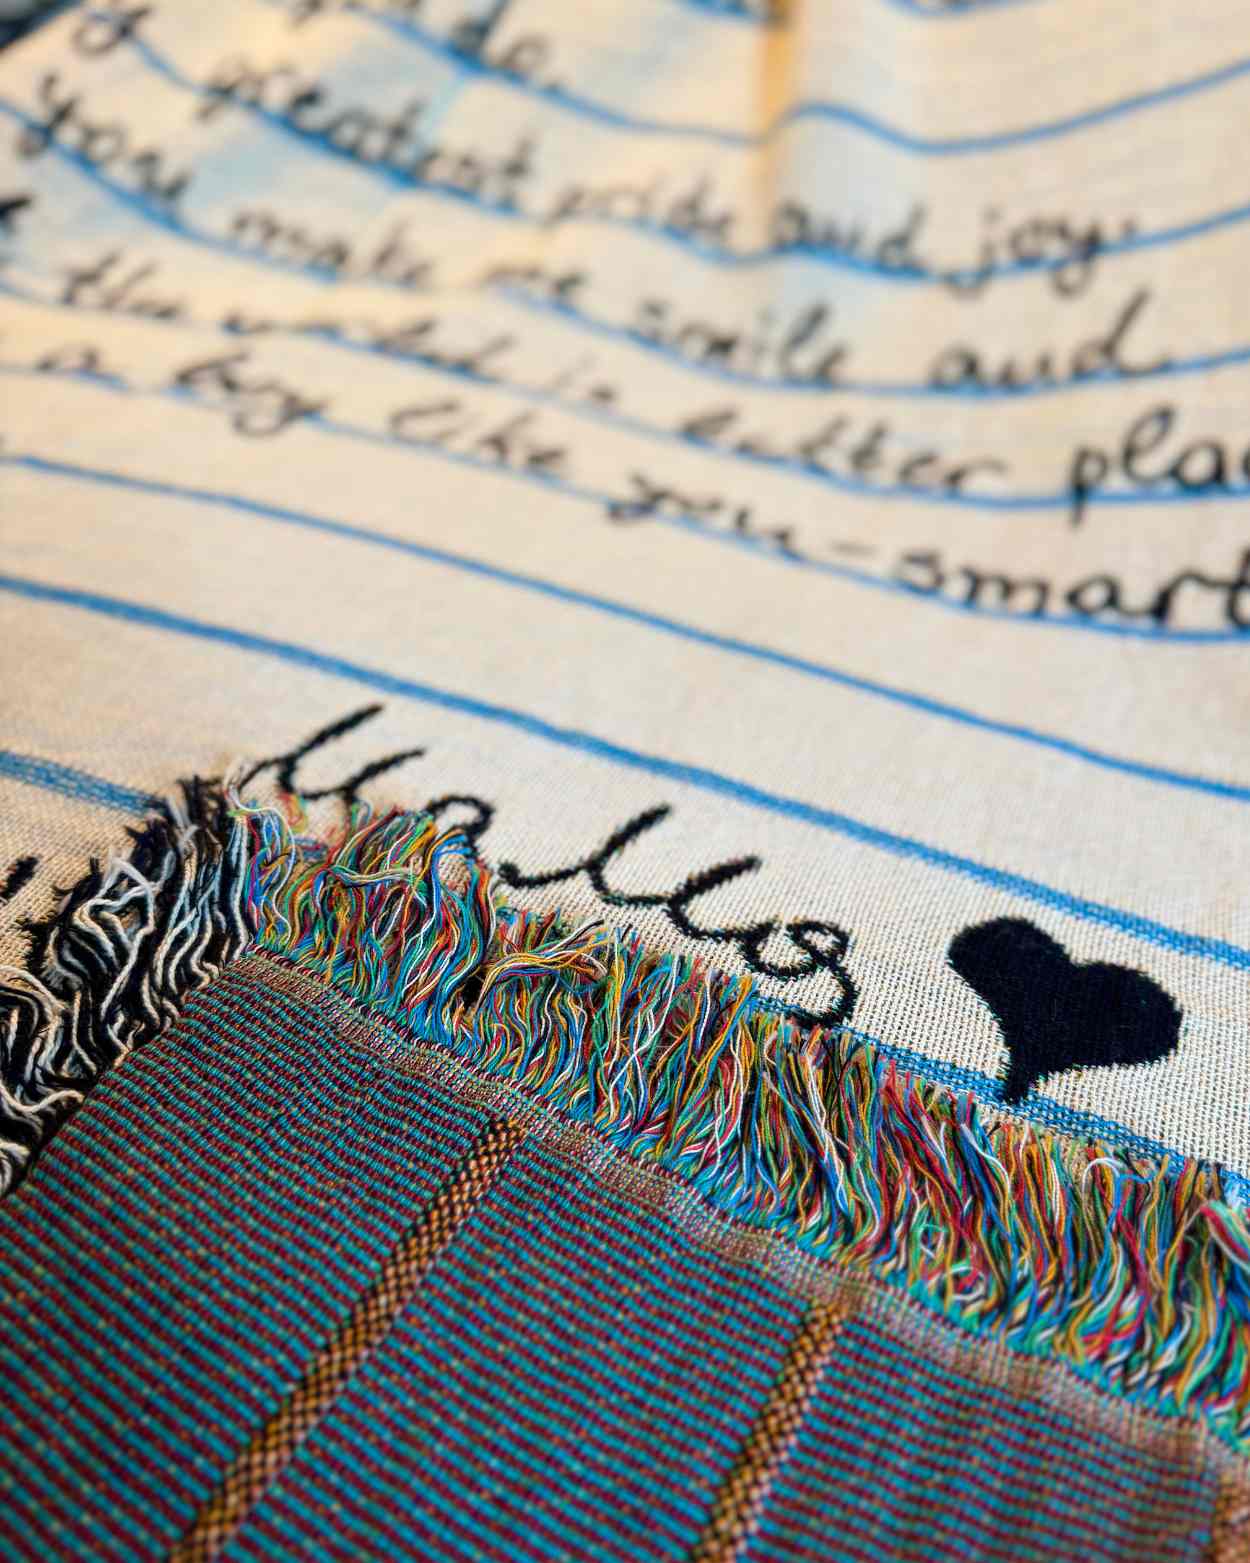 greatest pride and joy.
you make me smile and
the world is better plac
a boy like you - smart